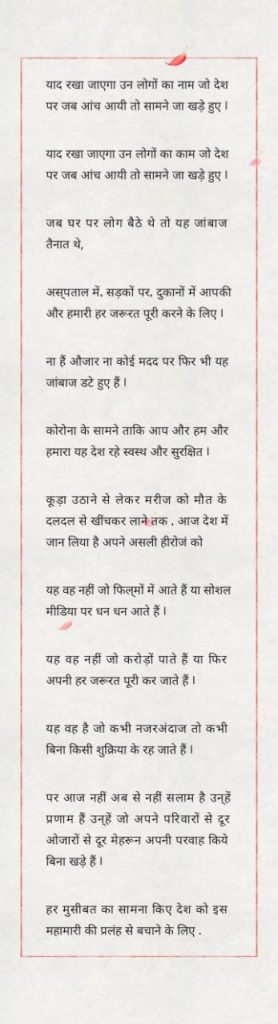 याद रखा जाएगा उन लोगों का नाम जो देश
पर जब आंच आयी तो सामने जा खड़े हुए ।
याद रखा जाएगा उन लोगों का काम जो देश
पर जब आंच आयी तो सामने जा खड़े हुए ।
जब घर पर लोग बैठे थे तो यह जांबाज
तैनात थे,
अस्पताल में, सड़कों पर, दुकानों में आपकी
और हमारी हर जरूरत पूरी करने के लिए ।
ना हैं औजार ना कोई मदद पर फिर भी यह
जांबाज डटे हुए हैं ।
कोरोना के सामने ताकि आप और हम और
हमारा यह देश रहे स्वस्थ और सुरक्षित ।
कूड़ा उठाने से लेकर मरीज को मौत के
दलदल से खींचकर लाने तक , आज देश में
जान लिया है अपने असली हीरोजं को
यह वह नहीं जो फिल्मों में आते हैं या सोशल
मीडिया पर धन धन आते हैं ।
यह वह नहीं जो करोड़ों पाते हैं या फिर
अपनी हर जरूरत पूरी कर जाते हैं ।
यह वह है जो कभी नजरअंदाज तो कभी
बिना किसी शुक्रिया के रह जाते हैं ।
पर आज नहीं अब से नहीं सलाम है उन्हें
प्रणाम हैं उन्हें जो अपने परिवारों से दूर
ओजारों से दूर मेहरून अपनी परवाह किये
बिना खड़े हैं ।
हर मुसीबत का सामना किए देश को इस
महामारी की प्रलंह से बचाने के लिए .